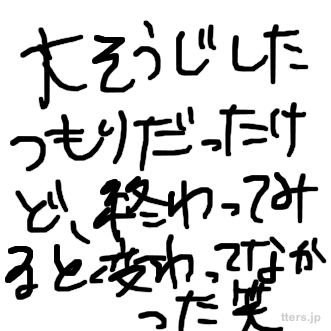 大そうじした
つもりだったけ
ど、終わってみ
ると変わってなか
った笑
tters.jp